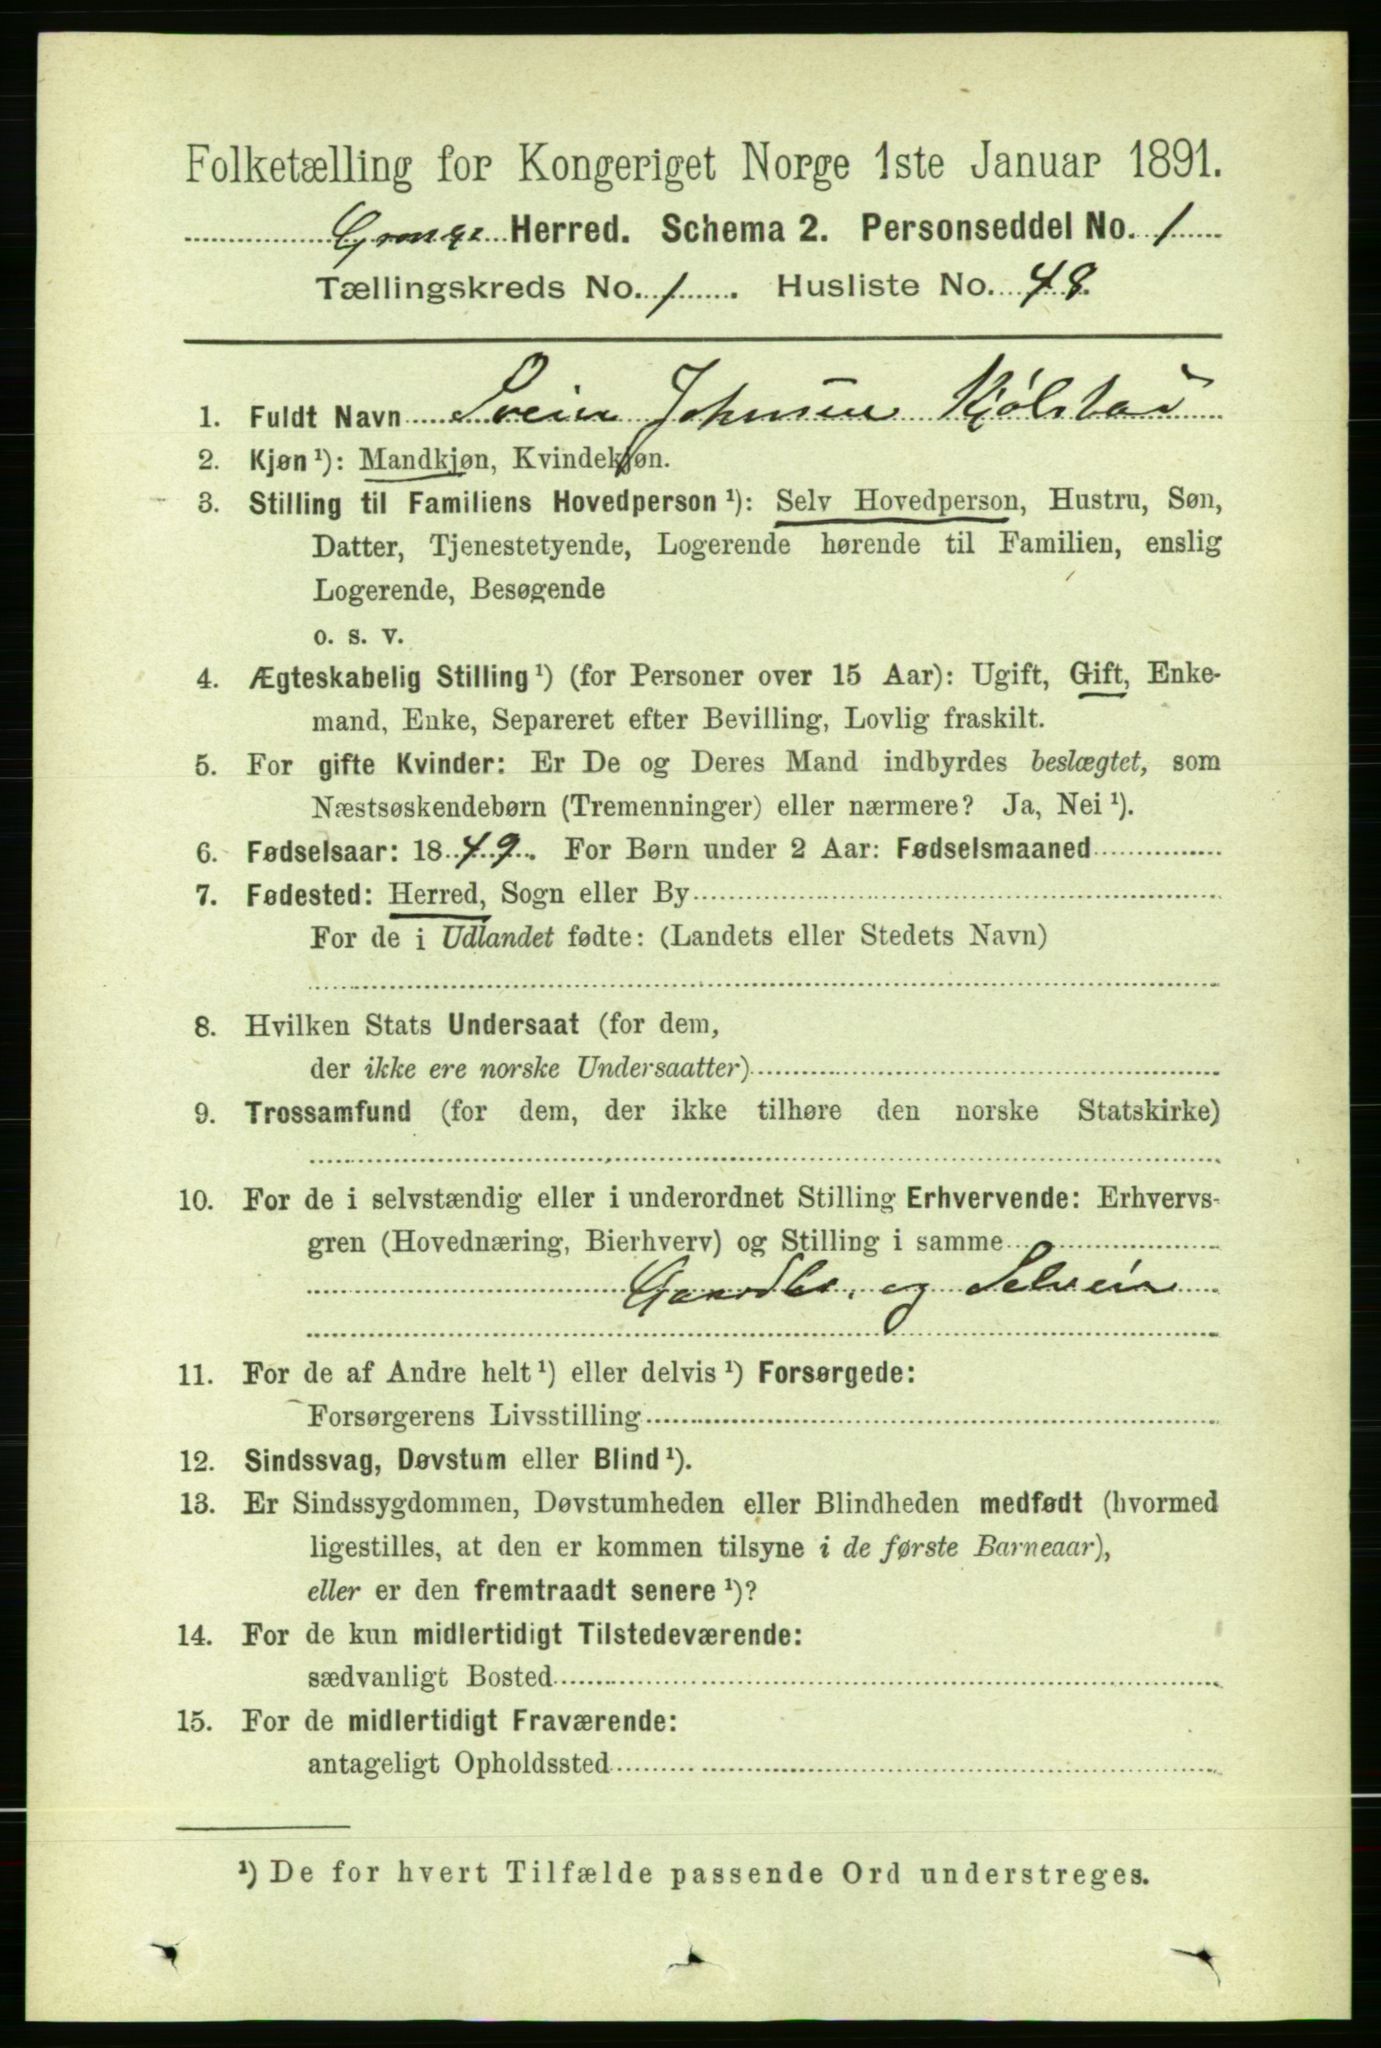 Folketælling for Kongeriget Norge 1ste Januar 1891.
Grong Herred. Schema 2. Personseddel No. 1
Tællingskreds No. 1. Husliste No. 48.
1. Fuldt Navn Svein Johnsen Kjølstad
2. Kjøn¹): Mandkjøn, Kvindekjøn.
3. Stilling til Familiens Hovedperson¹): Selv Hovedperson, Hustru, Søn,
Datter, Tjenestetyende, Logerende hørende til Familien, enslig
Logerende, Besøgende
o. s. v.
4. Ægteskabelig Stilling¹) (for Personer over 15 Aar): Ugift, Gift, Enke-
mand, Enke, Separeret efter Bevilling, Lovlig fraskilt.
5. For gifte Kvinder: Er De og Deres Mand indbyrdes beslægtet, som
Næstsøskendebørn (Tremenninger) eller nærmere? Ja, Nei¹).
6. Fødselsaar: 1849. For Børn under 2 Aar: Fødselsmaaned
7. Fødested: Herred, Sogn eller By
For de i Udlandet fødte: (Landets eller Stedets Navn)
8. Hvilken Stats Undersaat (for dem,
der ikke ere norske Undersaatter)
9. Trossamfund (for dem, der ikke tilhøre den norske Statskirke)
10. For de i selvstændig eller i underordnet Stilling Erhvervende: Erhvervs-
gren (Hovednæring, Bierhverv) og Stilling i samme
Gaardbr. og Selveier
11. For de af Andre helt¹) eller delvis¹) Forsørgede:
Forsørgerens Livsstilling
12. Sindssvag, Døvstum eller Blind¹).
13. Er Sindssygdommen, Døvstumheden eller Blindheden medfødt (hvormed
ligestilles, at den er kommen tilsyne i de første Barneaar),
eller er den fremtraadt senere¹)?
14. For de kun midlertidigt Tilstedeværende:
sædvanligt Bosted
15. For de midlertidigt Fraværende:
antageligt Opholdssted
¹) De for hvert Tilfælde passende Ord understreges.